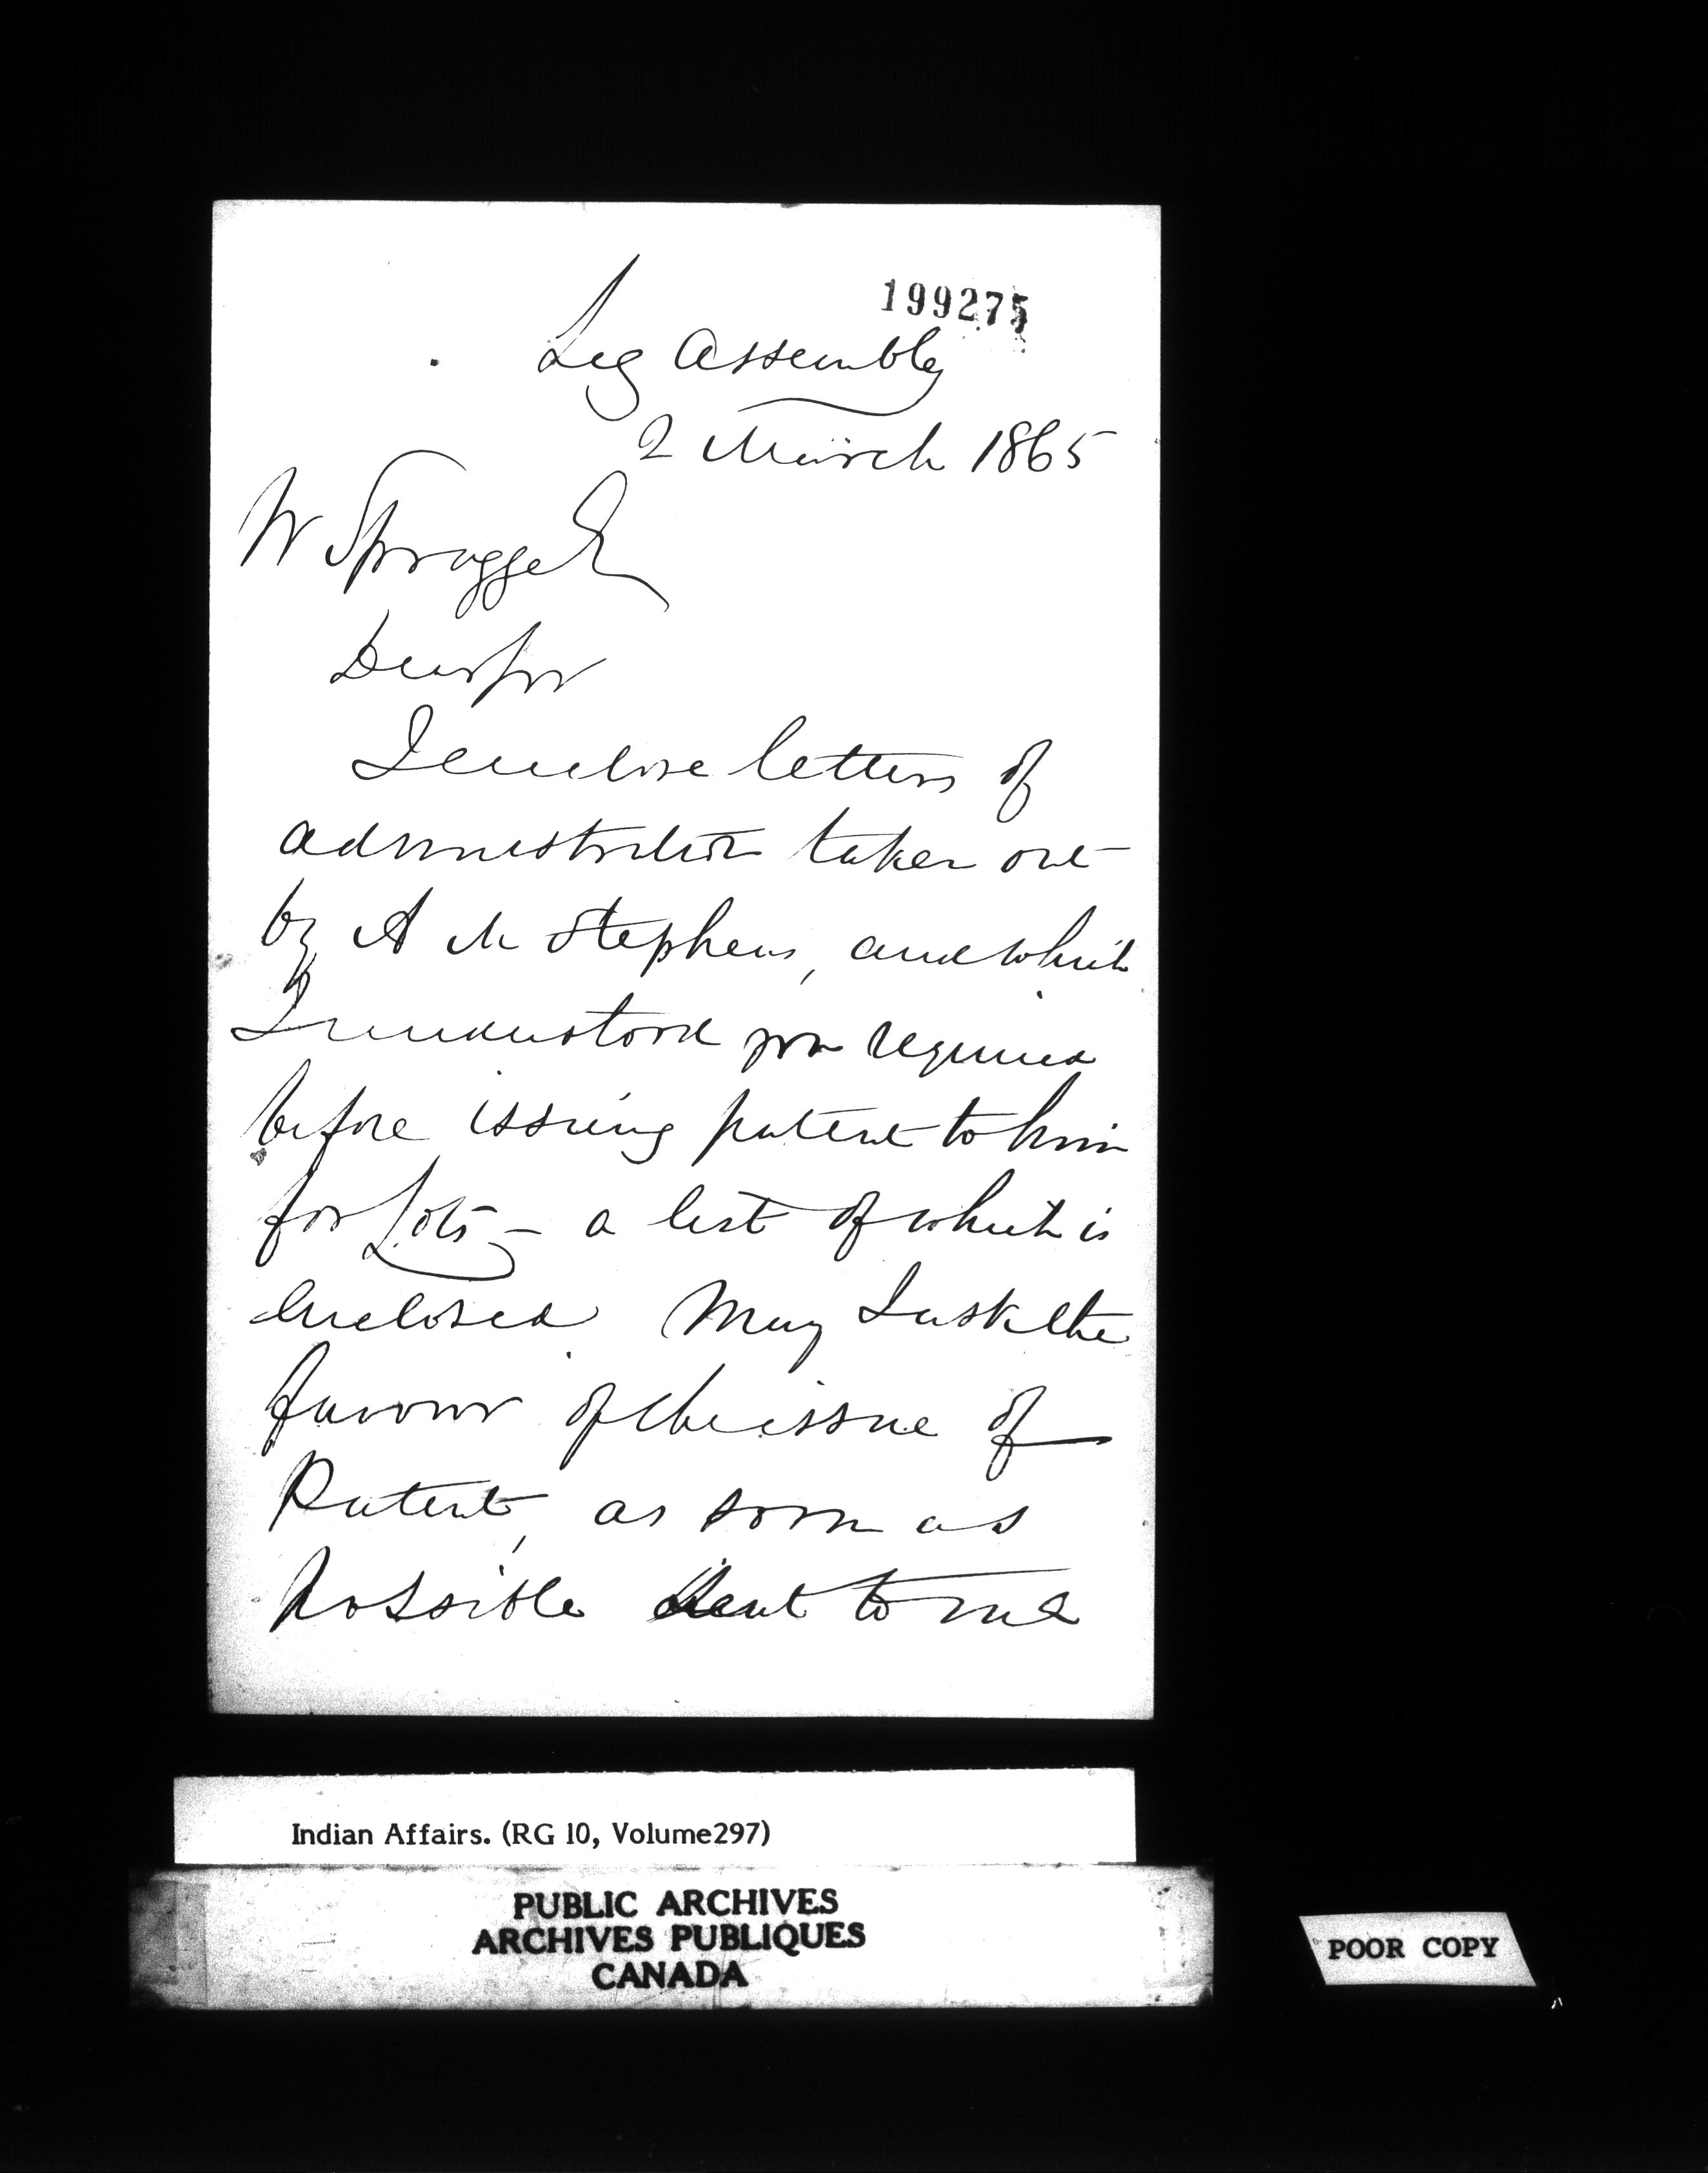 199275
Leg Assembly
2 March 1865
W Spragge
Dear Sir
I enclose letters of
administration taken out
by A M Stephens, and which
I understood you required
before issuing patent to him
for Lots - a list of which is
enclosed May I ask the
favour of the issue of
Patent, as soon as
possible sent to me
Indian Affairs. (RG 10, Volume297)
PUBLIC ARCHIVES
ARCHIVES PUBLIQUES
CANADA
POOR COPY